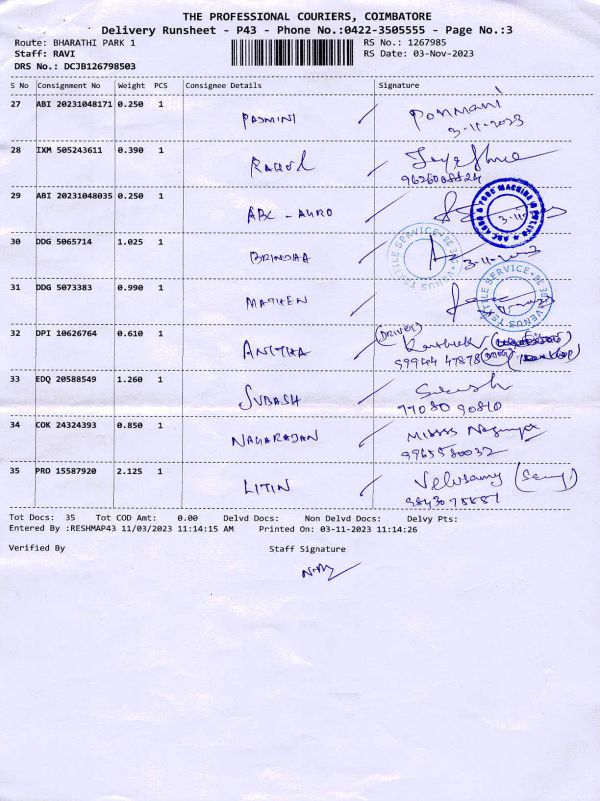 THE PROFESSIONAL COURIERS, COIMBATORE
Delivery Runsheet - P43 - Phone No.:0422-3505555 - Page No.:3
Route: BHARATHI PARK 1 RS No.: 1267985
Staff: RAVI RS Date: 03-Nov-2023
DRS No.: DCJB126798503
S No Consignment No Weight PCS Consignee Details Signature
27 ABI 20231048171 0.250 1 PADMINI Ponmani
3-11-2023
28 IXM 505243611 0.390 1 RAHUL
29 ABI 20231048035 0.250 1 ABC - AURO
3-11-
30 DDG 5065714 1.025 1 BRINDHA 3-11-2023
VENUS TEXTILE SERVICE
31 DDG 5073383 0.990 1 MATHEN
VENUS TEXTILE SERVICE
32 DPI 10626764 0.610 1 ANITHA (DRIVER)
99944 47878
33 EDQ 20588549 1.260 1 SUBASH
77080 90810
34 COK 24324393 0.850 1 NAGARAJAN
9965580032
35 PRO 15587920 2.125 1 LITIN Velusamy
Tot Docs: 35 Tot COD Amt: 0.00 Delvd Docs: Non Delvd Docs: Delvy Pts:
Entered By :RESHMAP43 11/03/2023 11:14:15 AM Printed On: 03-11-2023 11:14:26
Verified By Staff Signature